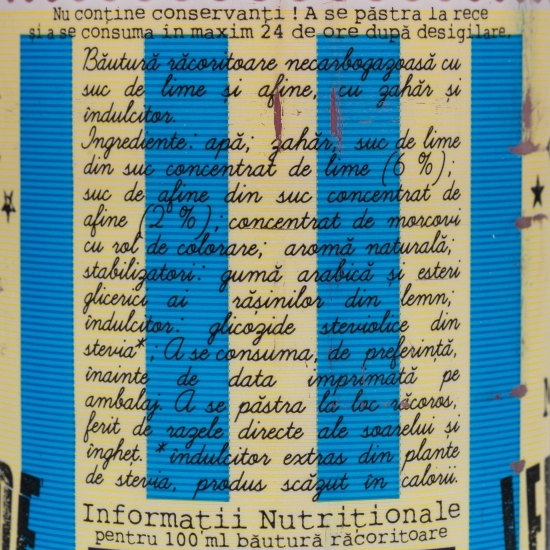 Nu conține conservanți ! A se păstra la rece
și a se consuma in maxim 24 de ore după desigilare.
Băutură răcoritoare necarbogazoasă cu
suc de lime și afine, cu zahăr și
îndulcitor.
Ingrediente: apă; zahăr; suc de lime
din suc concentrat de lime (6 %);
suc de afine din suc concentrat de
afine (2 %); concentrat de morcovi
cu rol de colorare; aromă naturală;
stabilizatori: gumă arabică și esteri
glicerici ai rășinilor din lemn;
îndulcitor: glicozide steviolice din
stevia*; A se consuma, de preferință,
înainte de data imprimată pe
ambalaj. A se păstra la loc răcoros,
ferit de razele directe ale soarelui și
îngheț. *îndulcitor extras din plante
de stevia, produs scăzut în calorii.
Informații Nutriționale
pentru 100 ml băutură răcoritoare